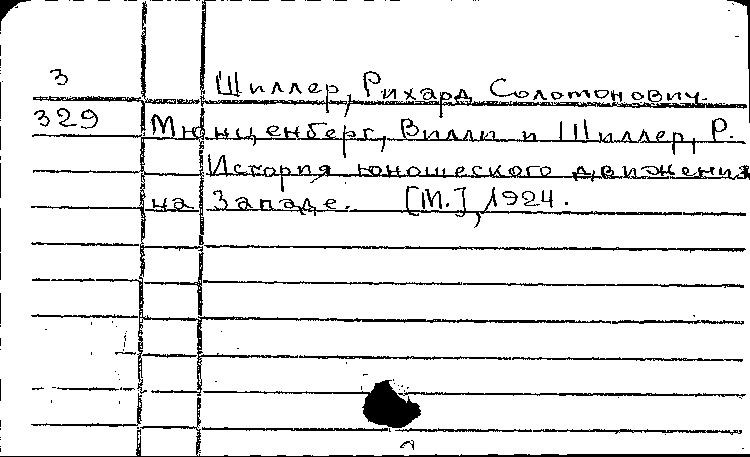 З Шиллер, Рихард Соломонович.
329 Мюнценберг, Вилли и Шиллер, Р.
История юношеского движения
на Западе. [М.], 1924.